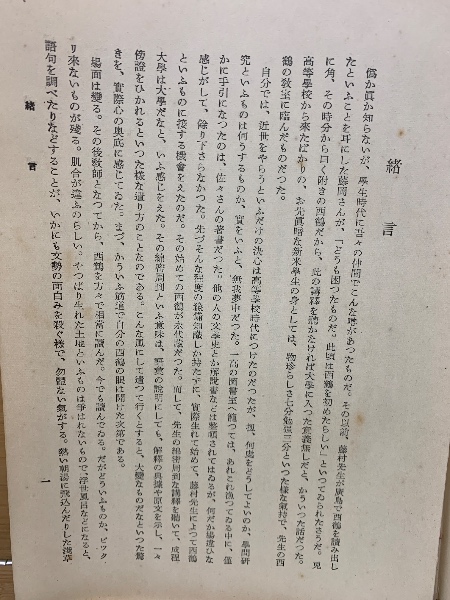 緒言
僞か眞か知らないが、學生時代に吾々の仲間でこんな噂があつたものだ。その以前、藤村先生が廣島で西鶴を讀み出し
たといふことを耳にした藤岡さんが、「どうも困つたものだ。此頃は西鶴を初めたらしい」といつてゐられたさうだ。兎
に角、その時分から曰く附きの西鶴だから、此の講釋を聽かなければ大學に入つた意義無しだと、かういつた話だつた。
高等學校から來たばかりの、お先眞暗な新米學生の身としては、物珍らしさ七分勉强三分といつた樣な氣持で、先生の西
鶴の敎室に臨んだものだつた。
自分では、近世をやらうといふだけの決心は高等學校時代につけたのだつたが、扨、何處をどうしてよいのか、學問研
究といふものは何うするものか、實をいふと、無我夢中だつた。一高の圖書室へ潛つては、あれこれ漁つてゐる中に、僅
かに手引になつたのは、佐々さんの著書だつた。他の人の文學史とか解說書などは整頓されてはゐるが、何だか場違ひな
感じがして、餘り下さらなかつた。先づそんな程度の豫備知識しか持たずに、實際生れて始めて、藤村先生によつて西鶴
といふものに接する機會をえたのだ。その始めての西鶴が永代藏だつた。而して、先生の綿密周到な講釋を聽いて、成程
大學は大學だなと、いふ感じをえた。その綿密周到といふ意味は、語彙の說明にしても、解釋の典據や原文を示し、一々
傍證をひかれるといつた樣な遣り方のことなのである。こんな風にして遣つて行くとすると、大變なものだなといつた驚
きを、實際心の奧底に感じてゐた。まづ、かういふ筋道で自分の西鶴の眼は開けた次第である。
場面は變る。その後敎師となつてから、西鶴を方々で相當に讀んだ。今でも讀んでゐる。だがどういふものか、ピツタ
リ來ないものが殘る。肌合が違ふのらしい。やつぱり生れた土地といふものは爭はれないもので、浮世風呂などになると、
語句を調べたりなどすることが、いかにも文勢の面白みを殺ぐ樣で、勿體ない氣がする。熱い朝湯に飛込んだりした淺草
緒言
一